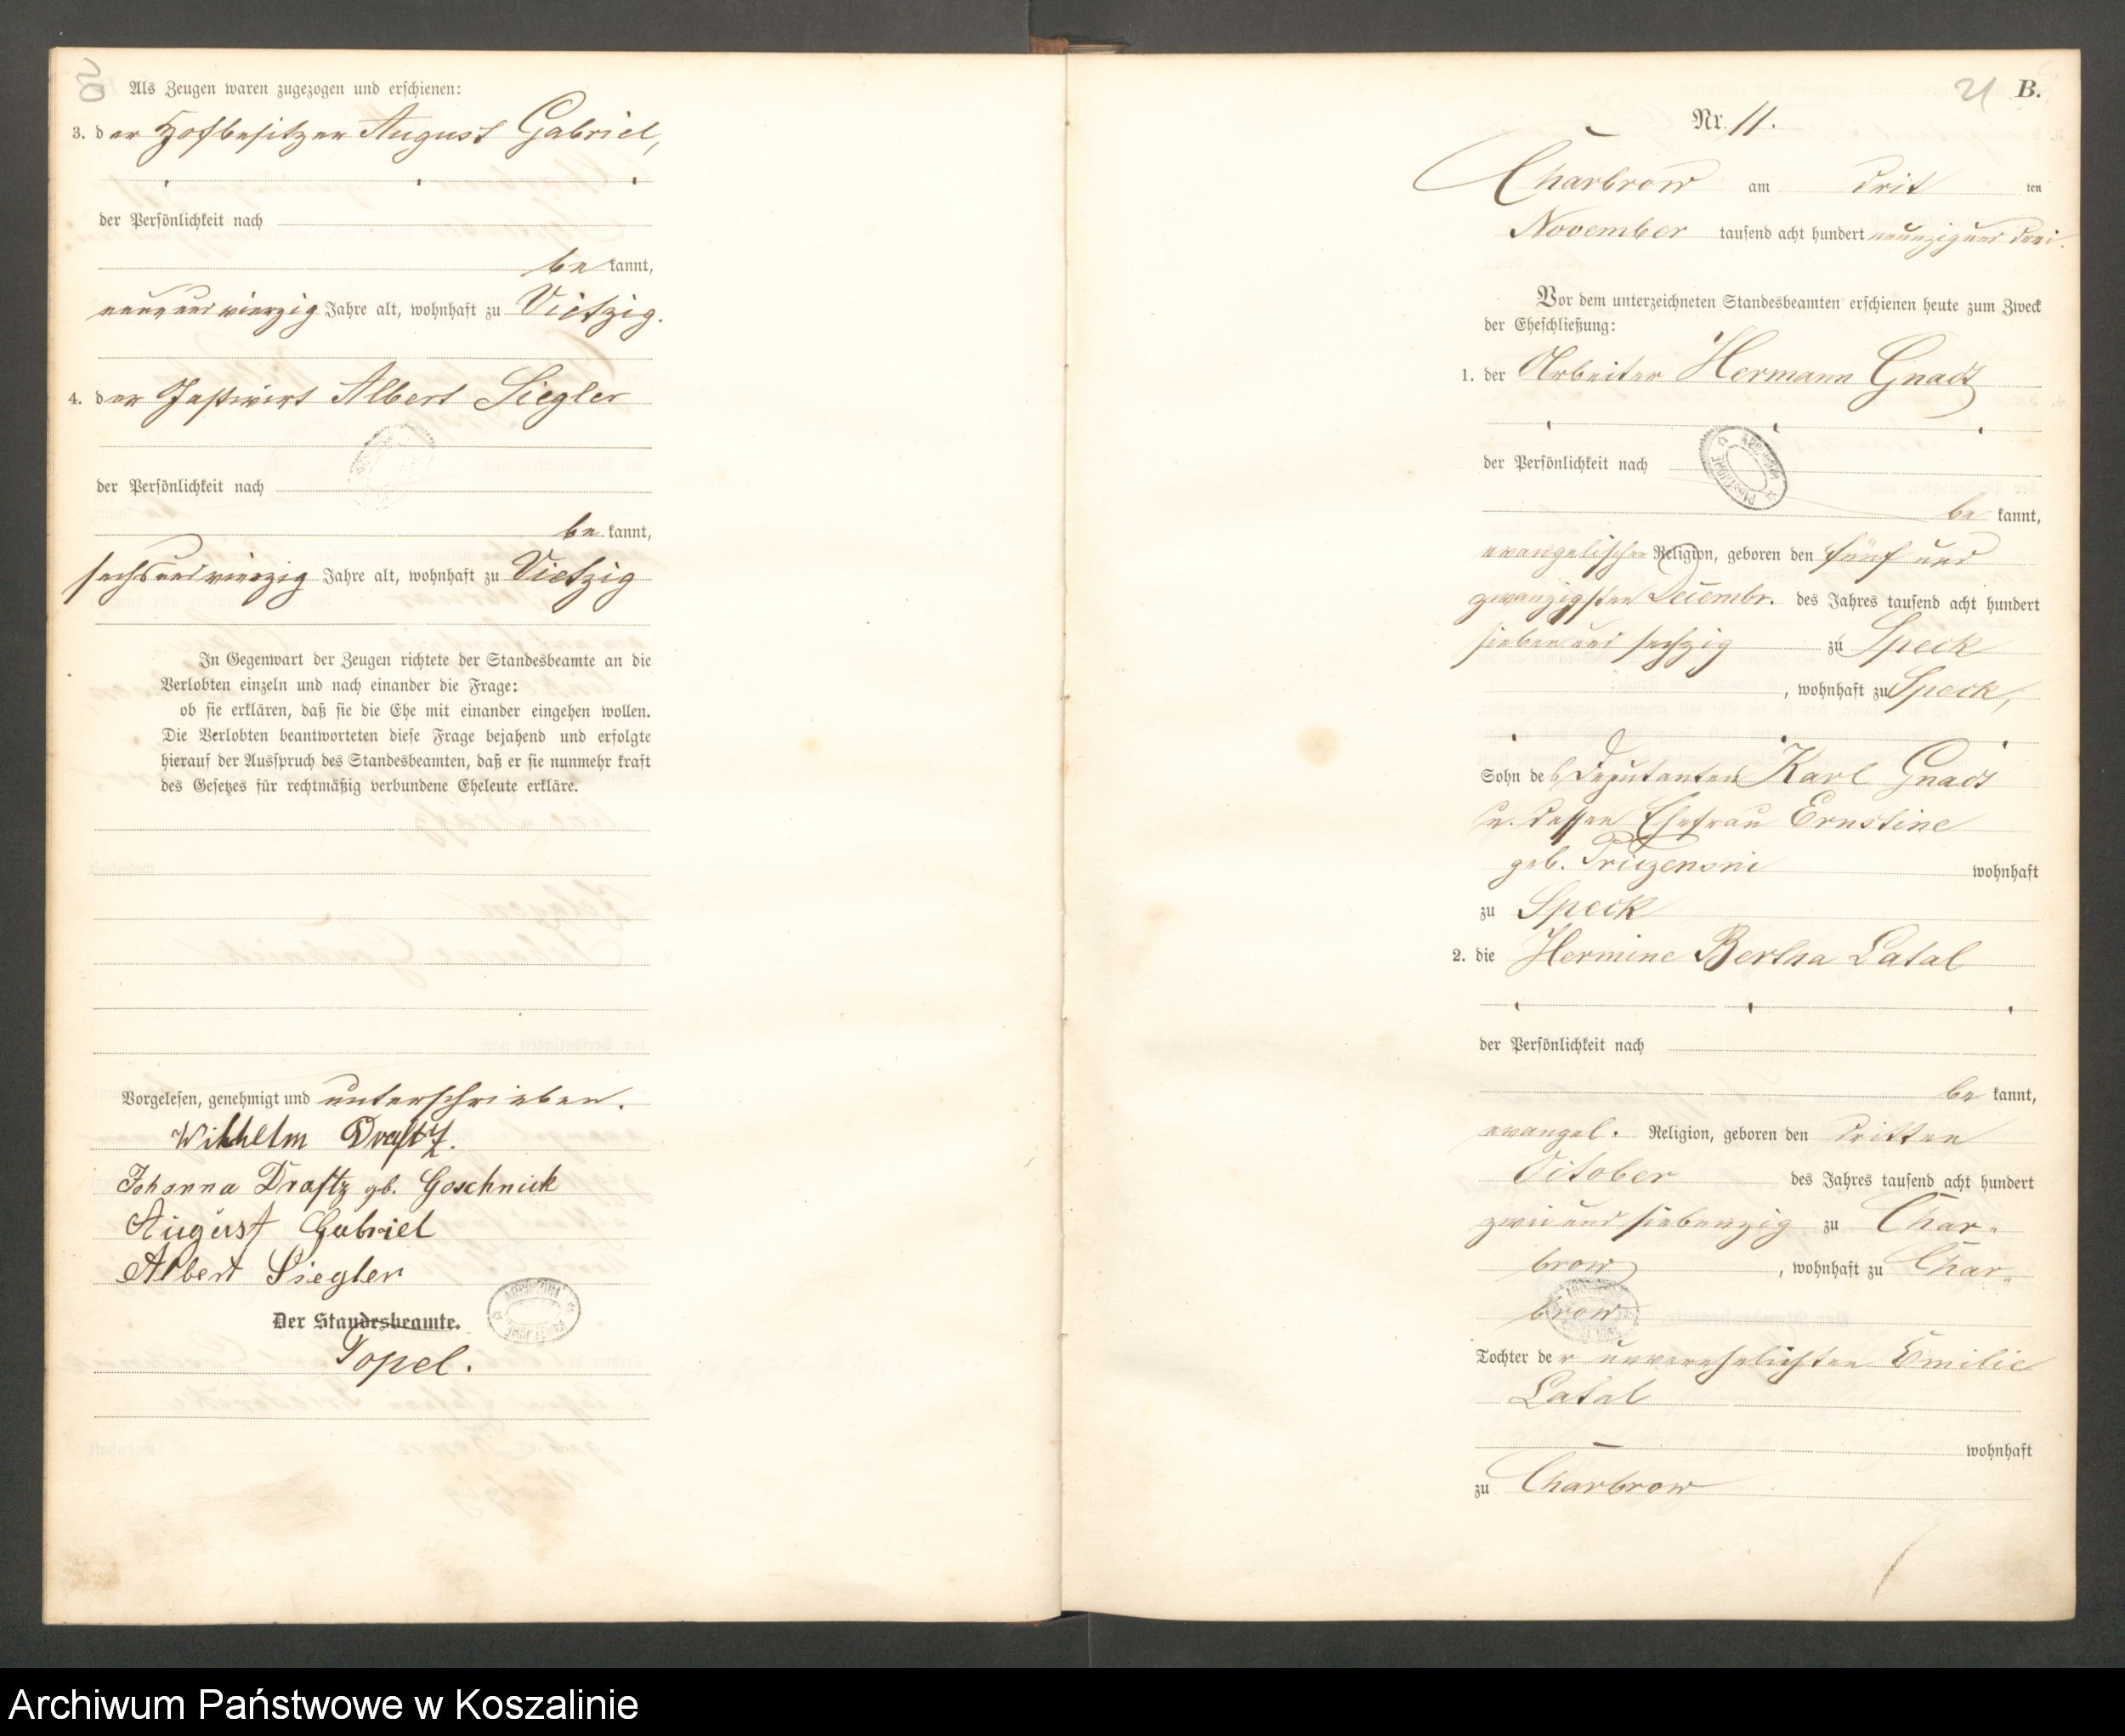 20
Als Zeugen waren zugezogen und erschienen:
3. der Hofbesitzer August Gabriel,
der Persönlichkeit nach
be kannt,
neunundvierzig Jahre alt, wohnhaft zu Vietzig.
4. der Gastwirt Albert Siegler
der Persönlichkeit nach
be kannt,
sechsundvierzig Jahre alt, wohnhaft zu Vietzig
In Gegenwart der Zeugen richtete der Standesbeamte an die
Verlobten einzeln und nach einander die Frage:
ob sie erklären, daß sie die Ehe mit einander eingehen wollen.
Die Verlobten beantworteten diese Frage bejahend und erfolgte
hierauf der Ausspruch des Standesbeamten, daß er sie nunmehr kraft
des Gesetzes für rechtmäßig verbundene Eheleute erkläre.
Vorgelesen, genehmigt und unterschrieben.
Wilhelm Draftz.
Johanna Draftz gb. Goschnick
August Gabriel
Albert Siegler
Der Standesbeamte.
Topel.
21 B.
Nr. 11.
Charbrow am drit ten
November tausend acht hundert neunzig und drei.
Vor dem unterzeichneten Standesbeamten erschienen heute zum Zweck
der Eheschließung:
1. der Arbeiter Hermann Gnadt
der Persönlichkeit nach
be kannt,
evangelischer Religion, geboren den fünf und
zwanzigsten Decembr. des Jahres tausend acht hundert
sieben und sechzig zu Speck
, wohnhaft zu Speck,
Sohn des Deputanten Karl Gnadt
u. dessen Ehefrau Ernstine
geb. wohnhaft
zu Speck
2. die Hermine Bertha Latal
der Persönlichkeit nach
be kannt,
evangel. Religion, geboren den dritten
October des Jahres tausend acht hundert
zwei und siebenzig zu Char-
brow, wohnhaft zu Char-
brow
Tochter der unverehelichten Emilie
Latal
wohnhaft
zu Charbrow
Archiwum Państwowe w Koszalinie